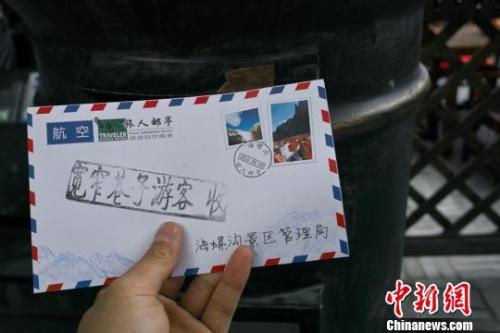 航空
TRAVELER
旅人邮亭
宽窄巷子游客 收
海螺沟景区管理局
中新网
Chinanews.com